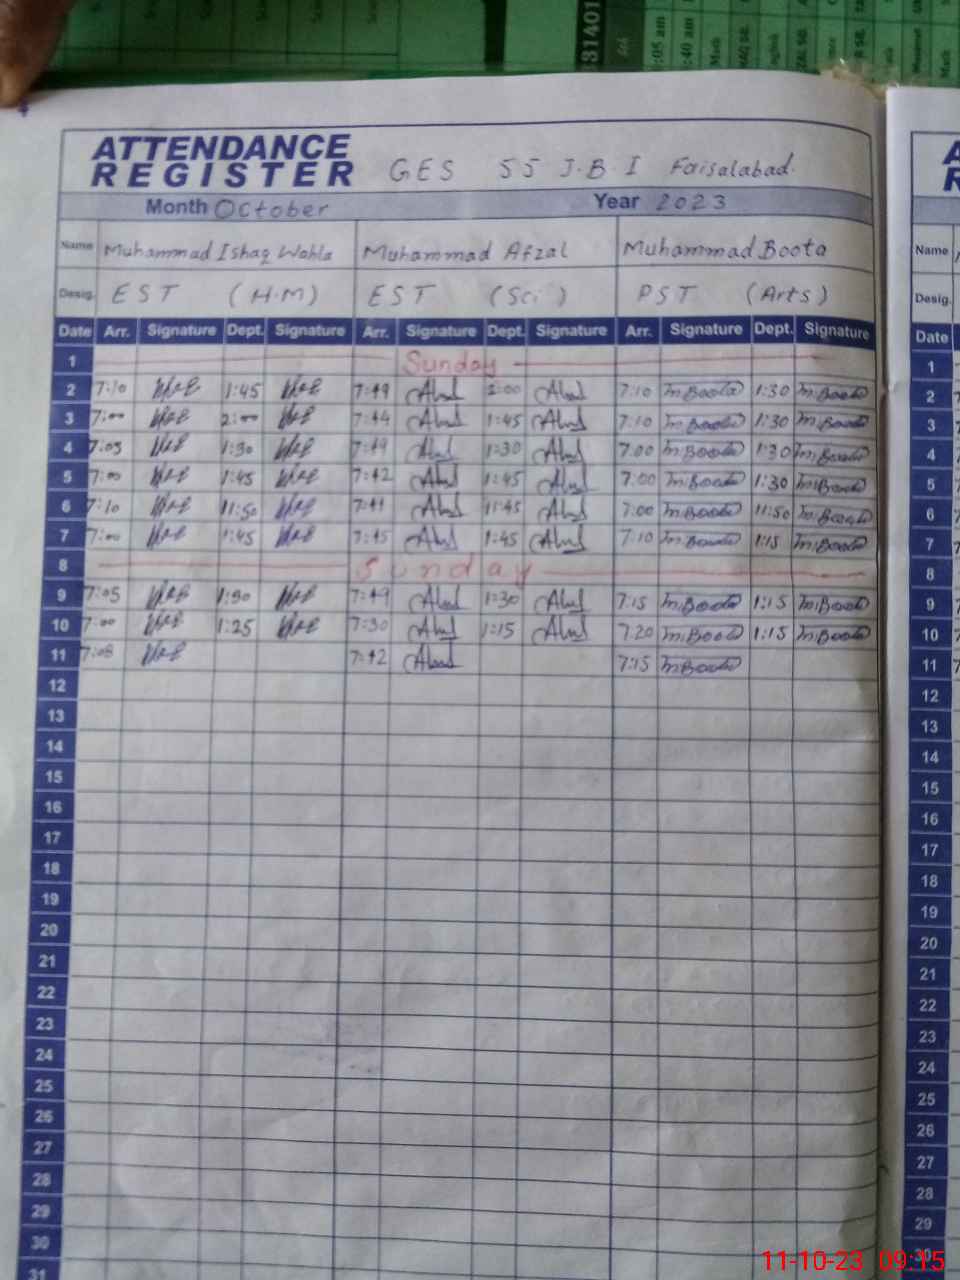 31401
:05 am
:40 am
Math
ATTENDANCE
REGISTER GES 55 J.B I Faisalabad.
Month October Year 2023
Name Muhammad Ishaq Wahla Muhammad Afzal Muhammad Boota
Desig. EST (H.M) EST (Sci) PST (Arts)
Date Arr. Signature Dept. Signature Arr. Signature Dept. Signature Arr. Signature Dept. Signature
1 Sunday
2 7:10 1:45 7:49 2:00 7:10 M.Boota 1:30 M.Boota
3 7:00 2:00 7:44 1:45 7:10 M.Boota 1:30 M.Boota
4 7:05 1:30 7:49 1:30 7:00 M.Boota 1:30 M.Boota
5 7:00 1:45 7:42 1:45 7:00 M.Boota 1:30 M.Boota
6 7:10 11:50 7:41 11:45 7:00 M.Boota 11:50 M.Boota
7 7:00 1:45 7:45 1:45 7:10 M.Boota 1:15 M.Boota
8 Sunday
9 7:05 1:30 7:49 1:30 7:15 M.Boota 1:15 M.Boota
10 7:00 1:25 7:30 1:15 7.20 M.Boota 1:15 M.Boota
11 7:08 7:42 7:15 M.Boota
12
13
14
15
16
17
18
19
20
21
22
23
24
25
26
27
28
29
30
31
A
R
Name
Desig.
Date
1
2
3
4
5
6
7
8
9
10
11
12
13
14
15
16
17
18
19
20
21
22
23
24
25
26
27
28
29
30
11-10-23 09:15